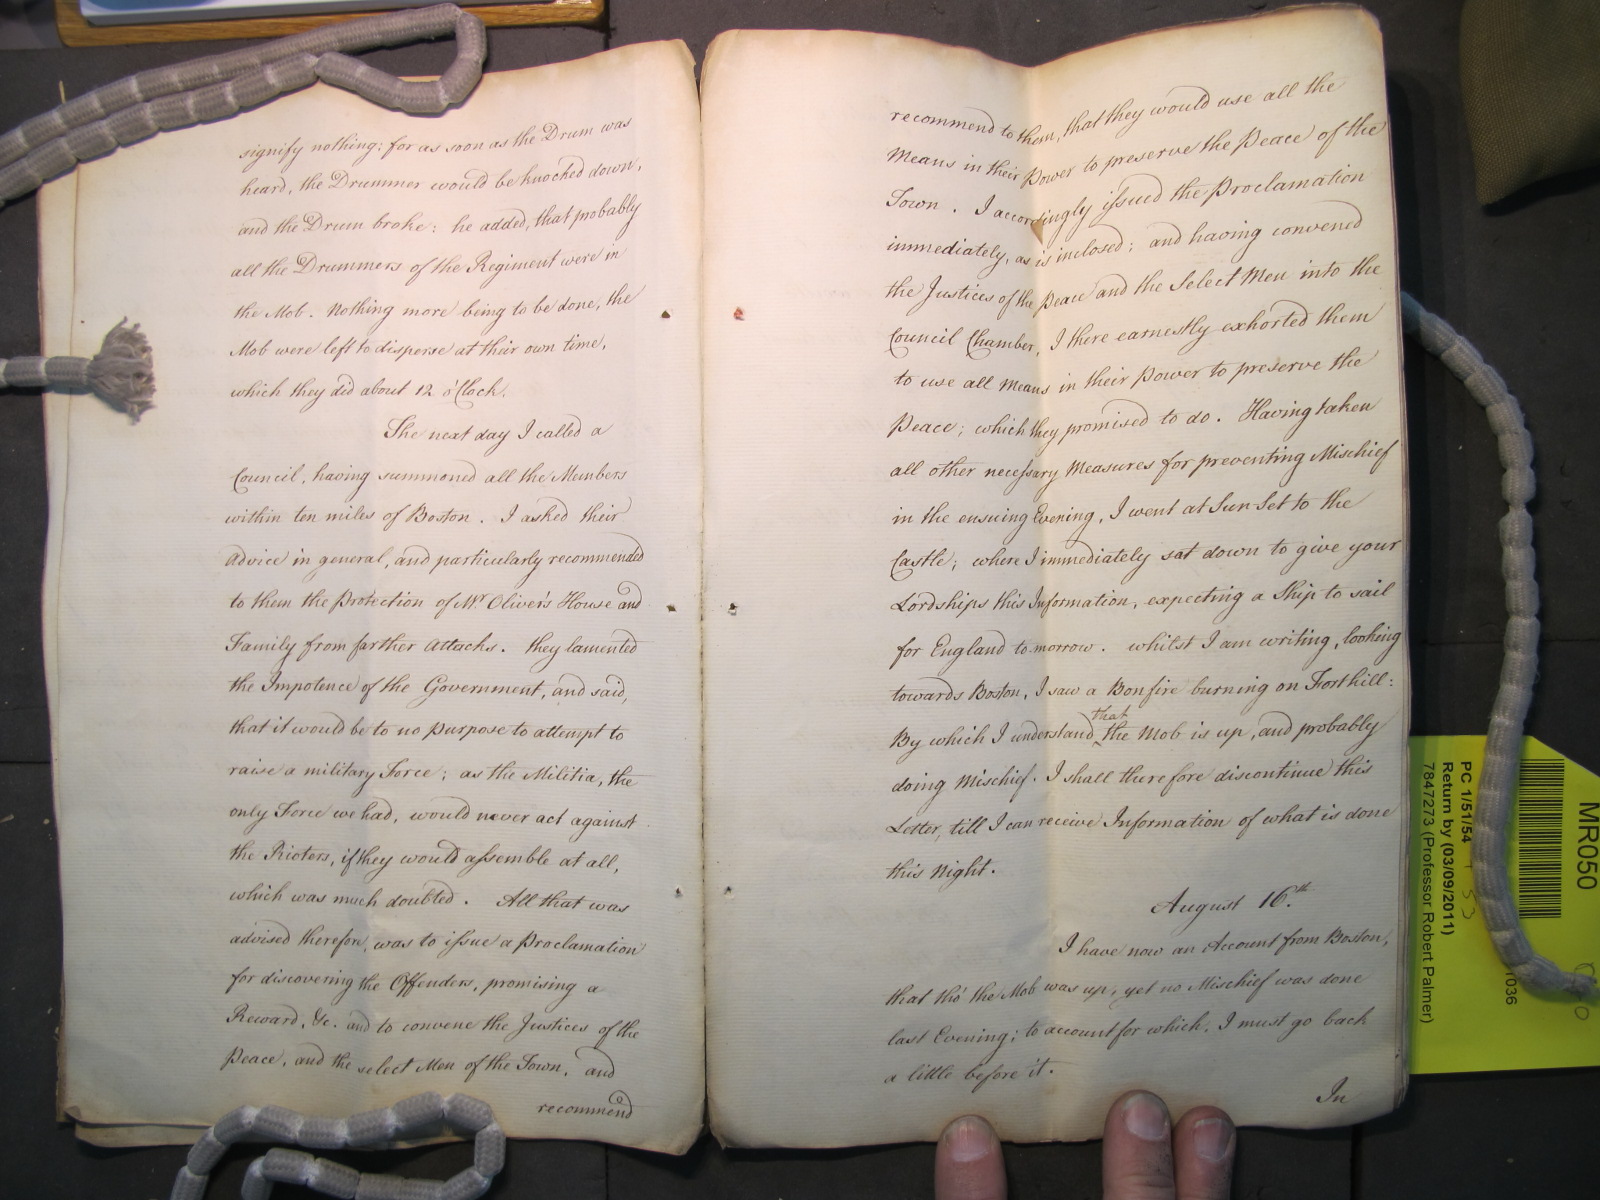 signify nothing; for as soon as the Drum was
heard, the Drummer would be knocked down,
and the Drum broke: he added, that probably
all the Drummers of the Regiment were in
the Mob. Nothing more being to be done, the
Mob were left to disperse at their own time,
which they did about 12 o'Clock.
The next day I called a
Council, having summoned all the Members
within ten miles of Boston. I asked their
Advice in general, and particularly recommended
to them the Protection of Mr Oliver's House and
Family from farther Attacks. they lamented
the Impotence of the Government, and said,
that it would be to no purpose to attempt to
raise a military Force; as the Militia, the
only Force we had, would never act against
the Rioters, if they would assemble at all,
which was much doubted. All that was
advised therefore, was to issue a Proclamation
for discovering the Offenders, promising a
Reward, &c. and to convene the Justices of the
Peace, and the select Men of the Town, and
recommend
recommend to them, that they would use all the
Means in their Power to preserve the Peace of the
Town. I accordingly issued the Proclamation
immediately, as is inclosed; and having convened
the Justices of the Peace and the Select Men into the
Council Chamber, I there earnestly exhorted them
to use all Means in their Power to preserve the
Peace; which they promised to do. Having taken
all other necessary Measures for preventing Mischief
in the ensuing Evening, I went at Sun Set to the
Castle; where I immediately sat down to give your
Lordships this Information, expecting a Ship to sail
for England to-morrow. whilst I am writing, looking
towards Boston, I saw a Bonfire burning on Forthill:
By which I understand that the Mob is up, and probably
doing Mischief. I shall therefore discontinue this
Letter, till I can receive Information of what is done
this Night.
August 16th.
I have now an Account from Boston,
that tho' the Mob was up, yet no Mischief was done
last Evening; to account for which, I must go back
a little before it.
In
MR050
PC 1/51/54
Return by (03/09/2011)
7847273 (Professor Robert Palmer)
1036